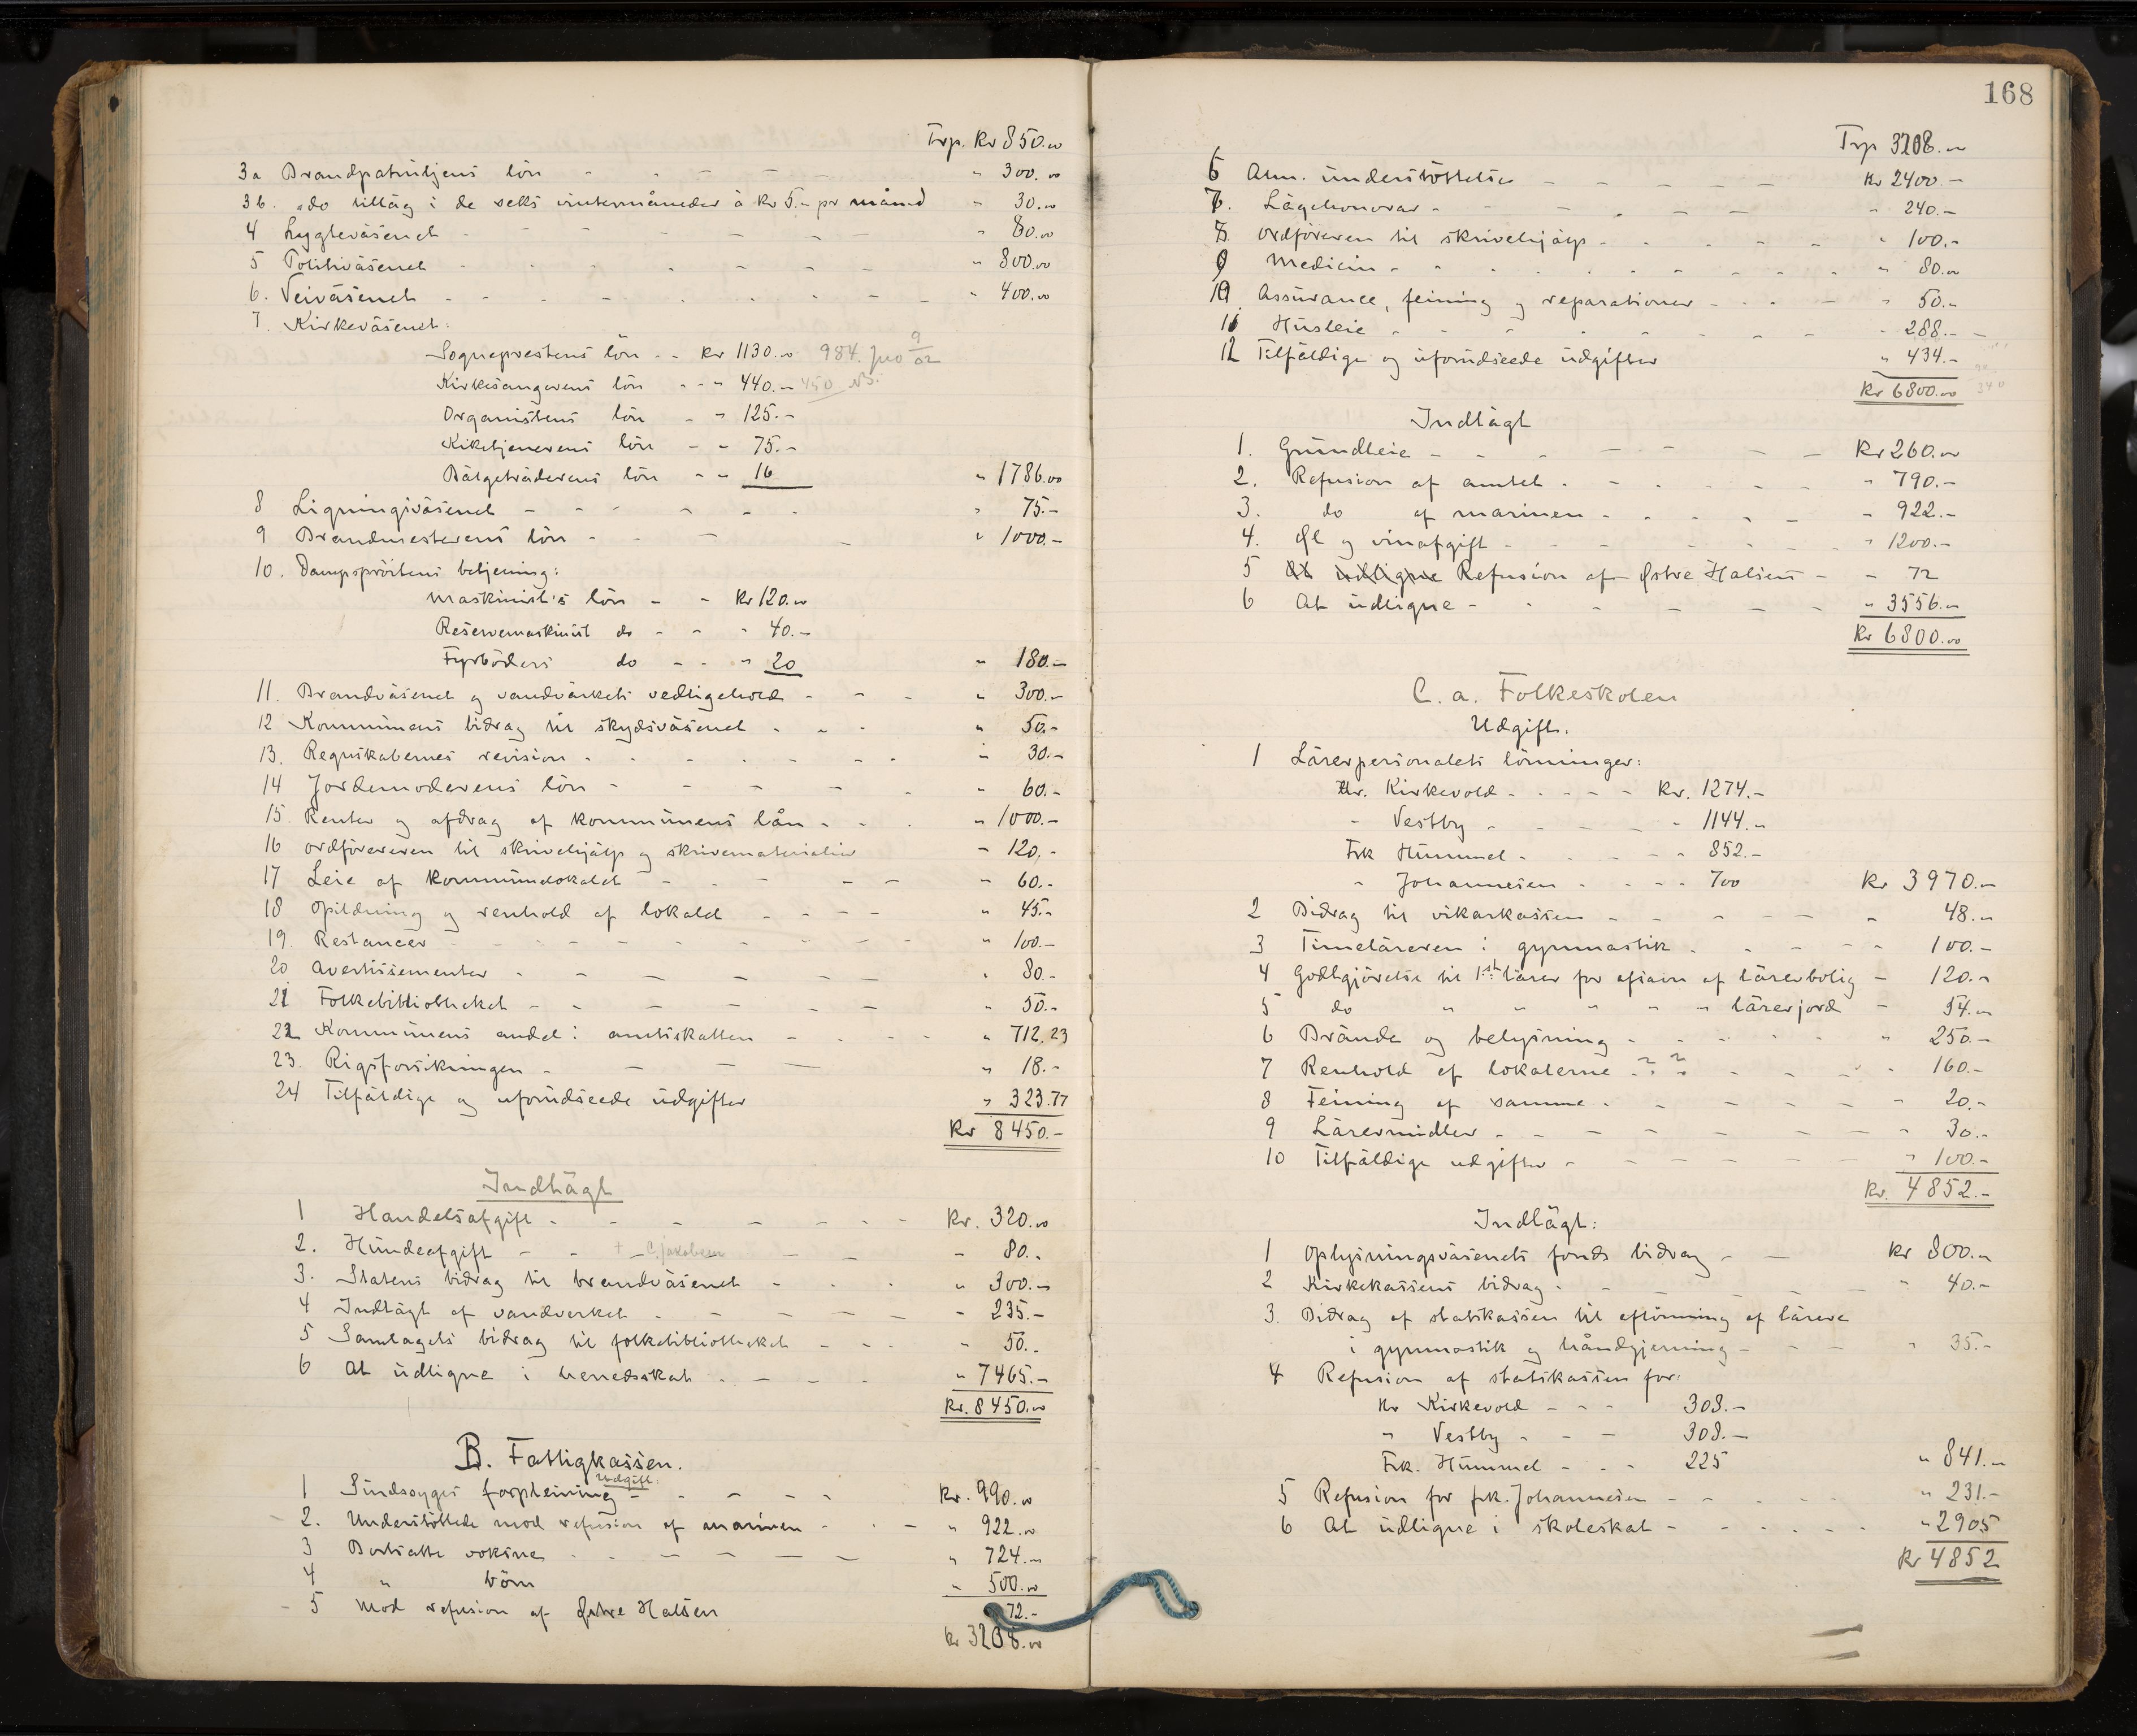 Trp. Kr 850.00
3a Brandpatruljens lön - - - - - " 300.00
3b. "do tillæg i de seks vintermåneder à kr 5.- pr måned " 30.00
4 Lygtevæsenet - - - - - - - " 80.00
5 Politivæsenet - - - - - - " 800.00
6. Veivæsenet - - - - - - - - " 400.00
7. Kirkevæsenet:
Sogneprestens lön - - kr 1130.00 984. pro 9/02
Kirkesangerens lön - - " 440.- 450 NB.
Organistens lön - " 125.-
Kiketjenerens lön - - 75.-
Bälgeträderens lön - - 16 " 1786.00
8 Ligningsväsenet - - - - - - " 75.-
9 Brandmesterens lön - - - - " 1000.-
10. Dampspröitens betjening:
Maskinist's lön - - Kr 120.00
Reservemaskinist do - - " 40.-
Fyrböders do - - " 20 " 180.-
11. Brandväsenet og vandvärkets vedligehold - - - " 300.-
12 Kommunens bidrag til skydsväsenet - - - " 50.-
13. Regnskabernes revision - - - - - - - " 30.-
14 Jordemoderens lön - - - - - " 60.-
15. Renter og afdrag af kommunens lån - - - " 1000.-
16 ordföreren til skrivehjälp og skrivematerialier - 120.-
17 Leie af kommunelokalet - - - - - - 60.-
18 Opildning og renhold af lokalet - - - - " 45.-
19. Restancer - - - - - - - - " 100.-
20 Avertissementer - - - - - - " 80.-
21 Folkebibliotheket - - - - - - " 50.-
22 Kommunens andel i amtskatten - - - - " 712.23
23. Rigsforsikringen - - - " 18.-
24 Tilfäldige og uforudseede udgifter " 323.77
Kr 8450.-
Indtägt
1 Handelsafgift - - - - - - - Kr. 320.00
2. Hundeafgift - - + C. Jakobsen - - - 80.-
3. Statens bidrag til brandväsenet - - - " 300.-
4 Indtägt af vandverket - - - - - 235.-
5 Samlagets bidrag til folkebibliotheket - - - " 50.-
6 At udligne i herredsskat - - - - " 7465.-
Kr. 8450.00
B. Fattigkassen.
Udgift:
1 Sindssyges forpleining - - - - - Kr. 990.00
2. Understöttede mod refusion af marinen - - - " 922.00
3 Bortsatte voksne - - - - - " 724.-
4 " börn " 500.00
5 Mod refusion af Østre Halsen 72.-
kr 3208.00
168
Trp 3208.00
6 Alm. understöttelse - - - - - Kr 2400.-
7. Lägehonorar - - - - - - " 240.-
8. Ordföreren til skrivehjälp - - - - - " 100.-
9 Medicin - - - - - - - - " 80.00
10. Assurance, feining og reparationer - - - - " 50.-
11 Husleie - - - - - - - 288.-
12 Tilfäldige og uforudseede udgifter " 434.-
Kr 6800.00 340
Indtägt
1. Grundleie - - - - - - - Kr 260.00
2. Refusion af amtet - - - - - - " 790.-
3. do af marinen - - - - - - 922.-
4. Øl og vinafgift - - - - - - " 1200.-
5 At udligne Refusion af Østre Halsens - - 72
6 At udligne - - - - - - " 3556.-
Kr 6800.00
C. a. Folkeskolen
Udgift.
1 Lärerpersonalets lönninger:
Hr. Kirkevold - - - - - Kr. 1274.-
- Vestby - - - - - 1144.-
Frk Hummel - - - - 852.-
" Johannesen - - - - 700 Kr 3970.-
2 Bidrag til vikarkassen - - - - - - 48.-
3 Timeläreren i gymnastik - - - - - 100.-
4 Godtgjörelse til 1ste lärer for afsavn af lärerbolig - 120.-
5 do " " " " " lärerjord - 54.-
6 Brände og belysning - - - - - " 250.-
7 Renhold af lokalerne - - - - - - 160.-
8 Feining af samme - - - - - - 20.-
9 Läremidler - - - - - - - 30.-
10 Tilfäldige udgifter - - - - - - " 100.-
Kr. 4852.-
Indtägt:
1 Oplysningsväsenets fonds bidrag - - Kr 800.-
2 Kirkekassens bidrag - - - - - - " 40.-
3. Bidrag af statskassen til aflönning af lärere
i gymnastik og håndgjerning - - - " 35.-
4 Refusion af statskassen for:
Hr Kirkevold - - - 308.-
" Vestby - - - 308.-
Frk. Hummel - - - 225 " 841.-
5 Refusion for frk. Johannesen - - - - - " 231.-
6 At udligne i skoleskat - - - - - - " 2905
Kr 4852